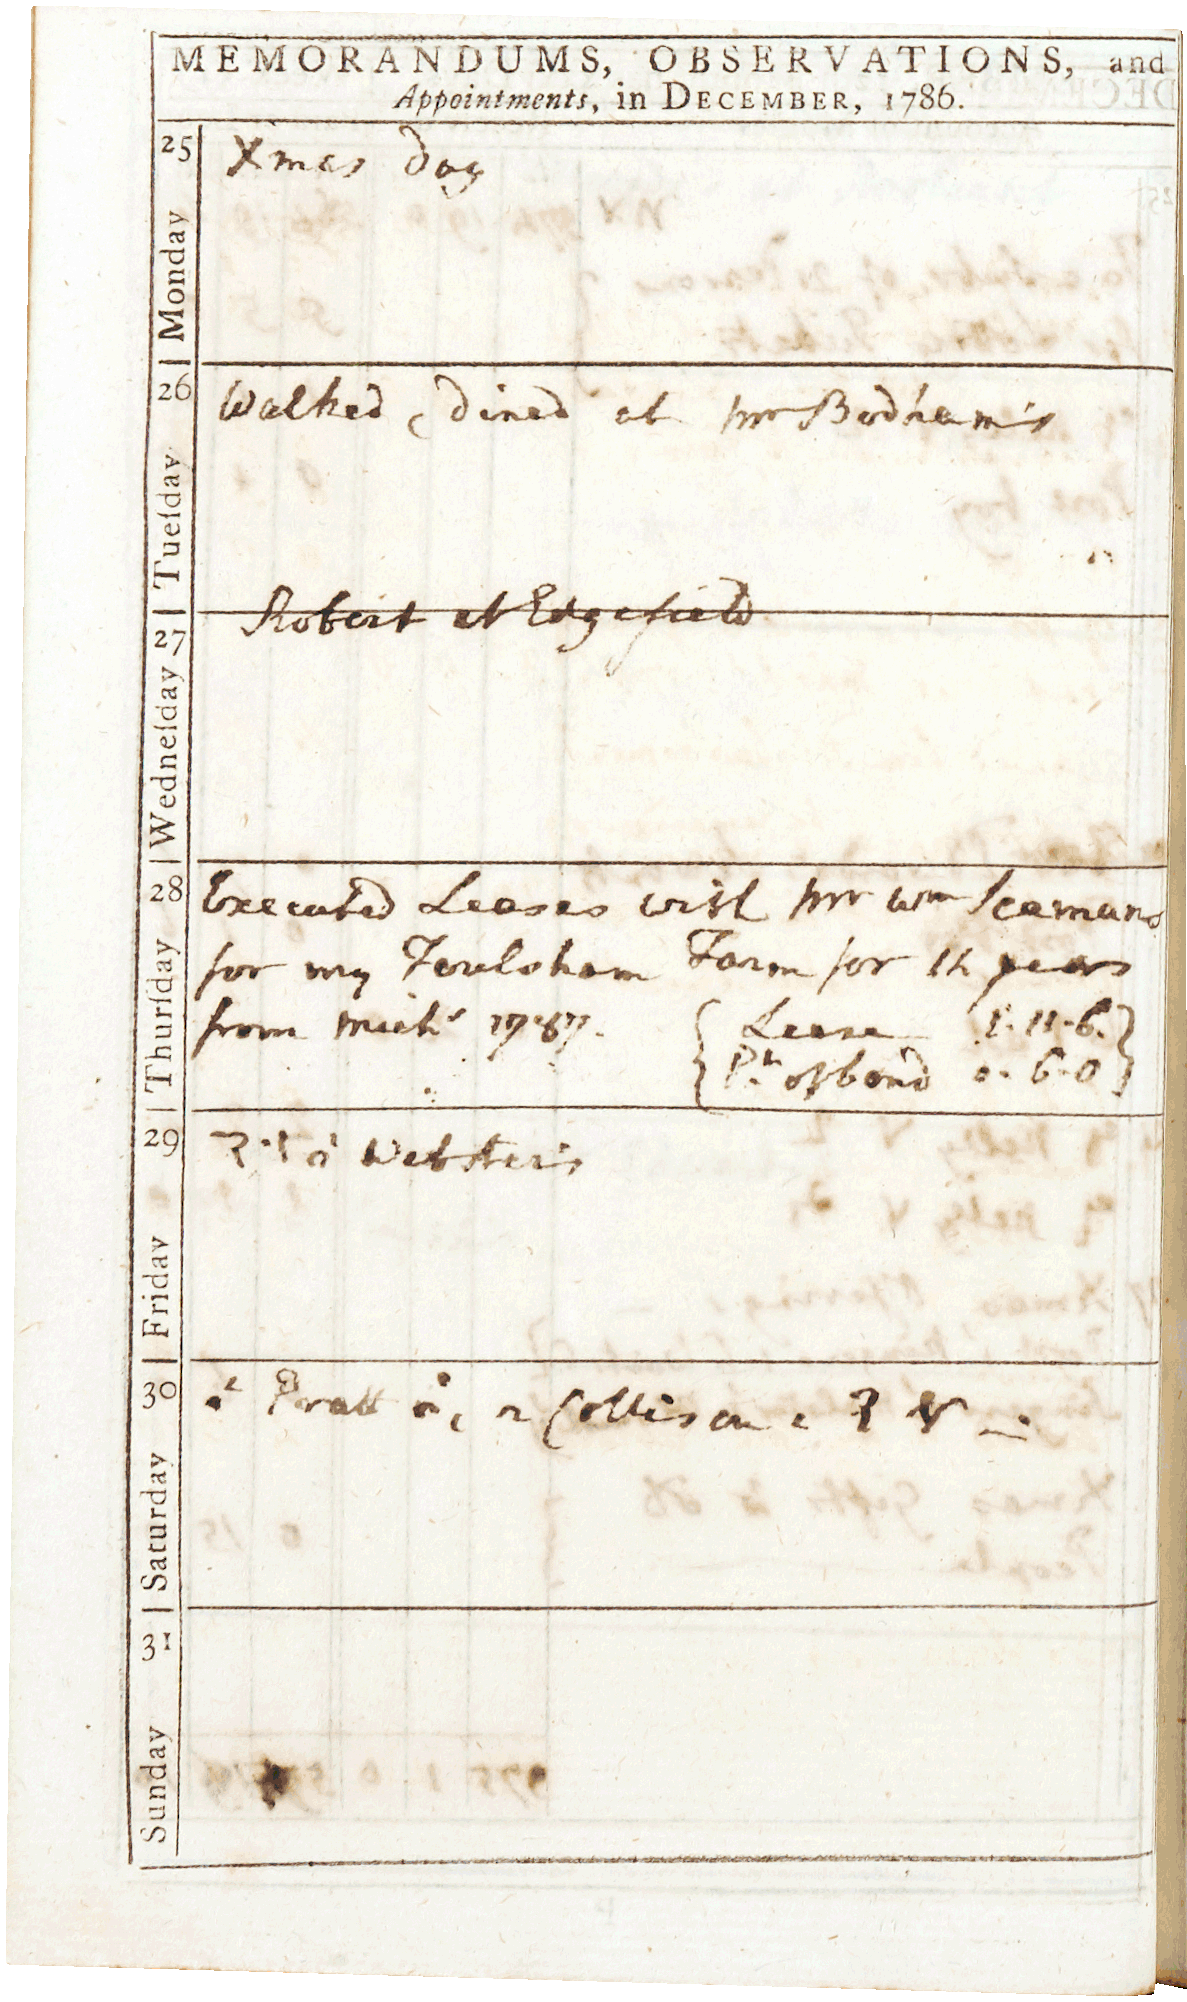 MEMORANDUMS, OBSERVATIONS, and
Appointments, in DECEMBER, 1786.
25 Monday
Xmas Day
26 Tueſday
Walked & dined at Mr Bodham's
Robert at Edgefield
27 Wedneſday
28 Thurſday
Executed Leases with Mr Wm Seamans
for my Foulsham Farm for 14 years
from Michs 1787.
Lease 1·11·6.
of bond 0·6·0
29 Friday
Webster's
30 Saturday
Pratt Collison
31 Sunday